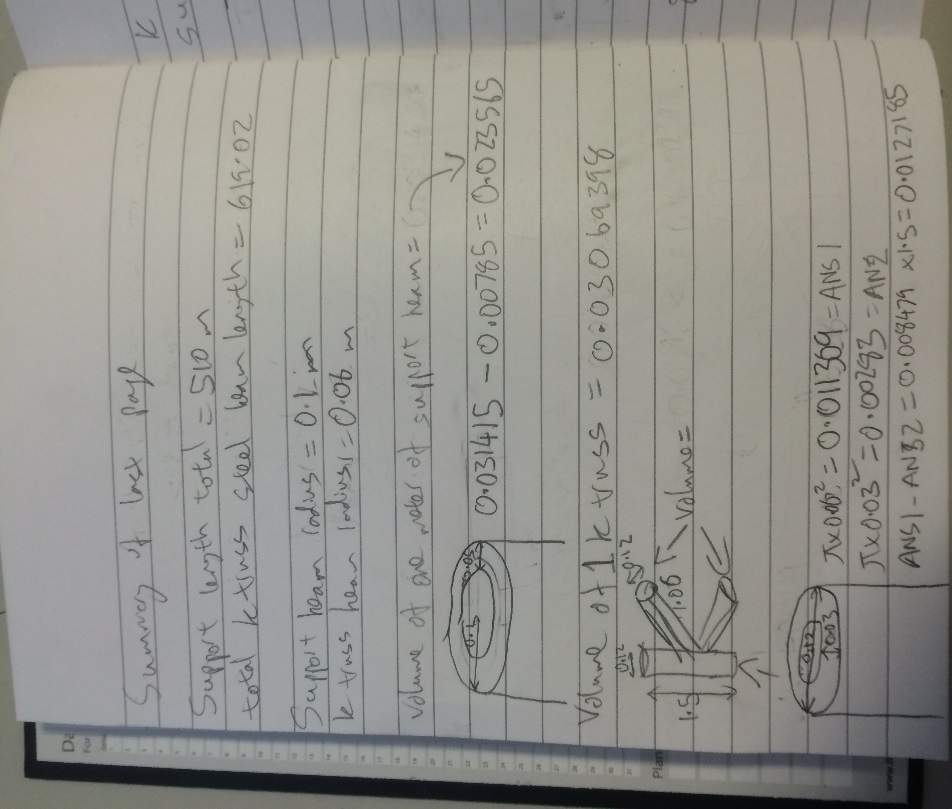 K
Su
Summery of last page
Support length total = 510 m
total k truss steel beam length = 619.02
Support beam radius = 0.1 m
k truss beam radius = 0.06 m
Volume of one meter of support beam =
0.1
0.05
0.031415 - 0.00785 = 0.023565
Volume of 1 k truss = 0.03069398
0.12
0.12
1.5
1.06
Volume =
0.12
0.03
π×0.06² = 0.011309 = ANS1
π×0.03² = 0.00283 = ANS2
ANS1 - ANS2 = 0.008479 ×1.5 = 0.0127185
Da
For
Plan
www.